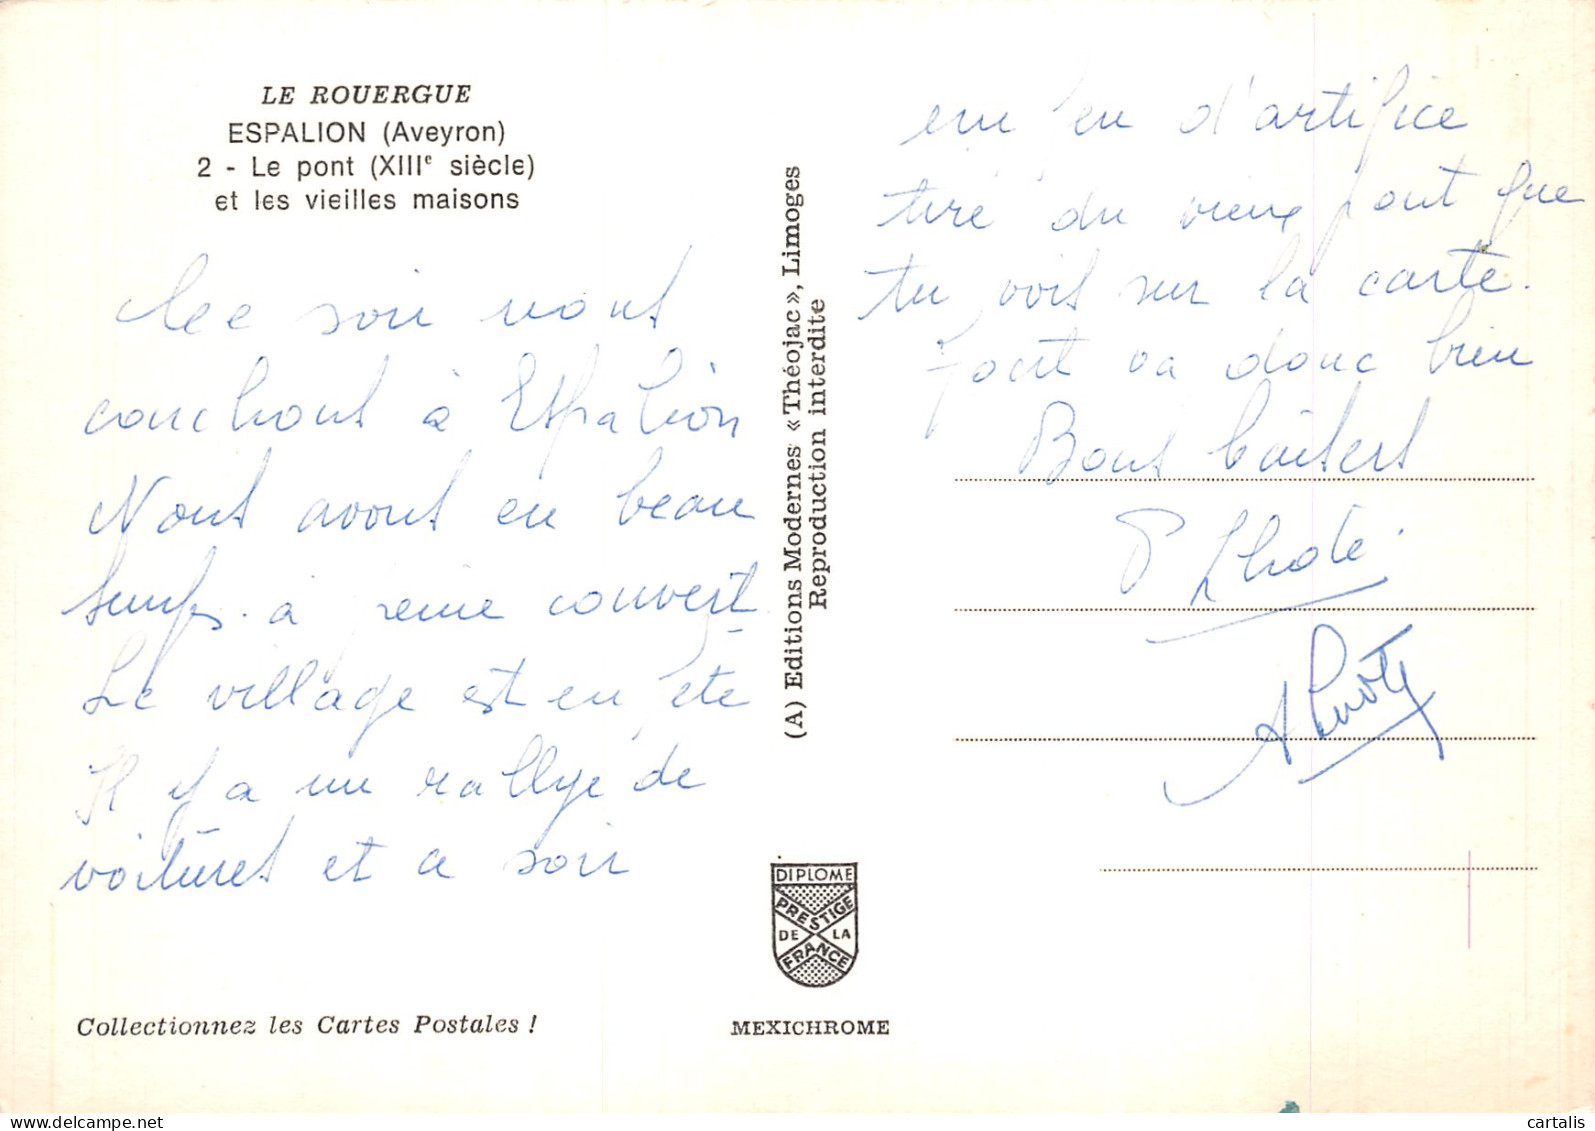 LE ROUERGUE
ESPALION (Aveyron)
2 - Le pont (XIIIe siècle)
et les vieilles maisons
Ce soir nous
couchons à Espalion
Nous avons eu beau
temps. à peine couvert
Le village est en été
Il y a un rallye de
voitures et ce soir
Collectionnez les Cartes Postales !
(A) Editions Modernes « Théojac », Limoges
Reproduction interdite
DIPLOME
PRESTIGE
DE LA
FRANCE
MEXICHROME
un feu d'artifice
tiré du vieux pont que
tu vois sur la carte.
Tout va donc bien
Bons baisers
P Lhote
A Lhote
cartalis